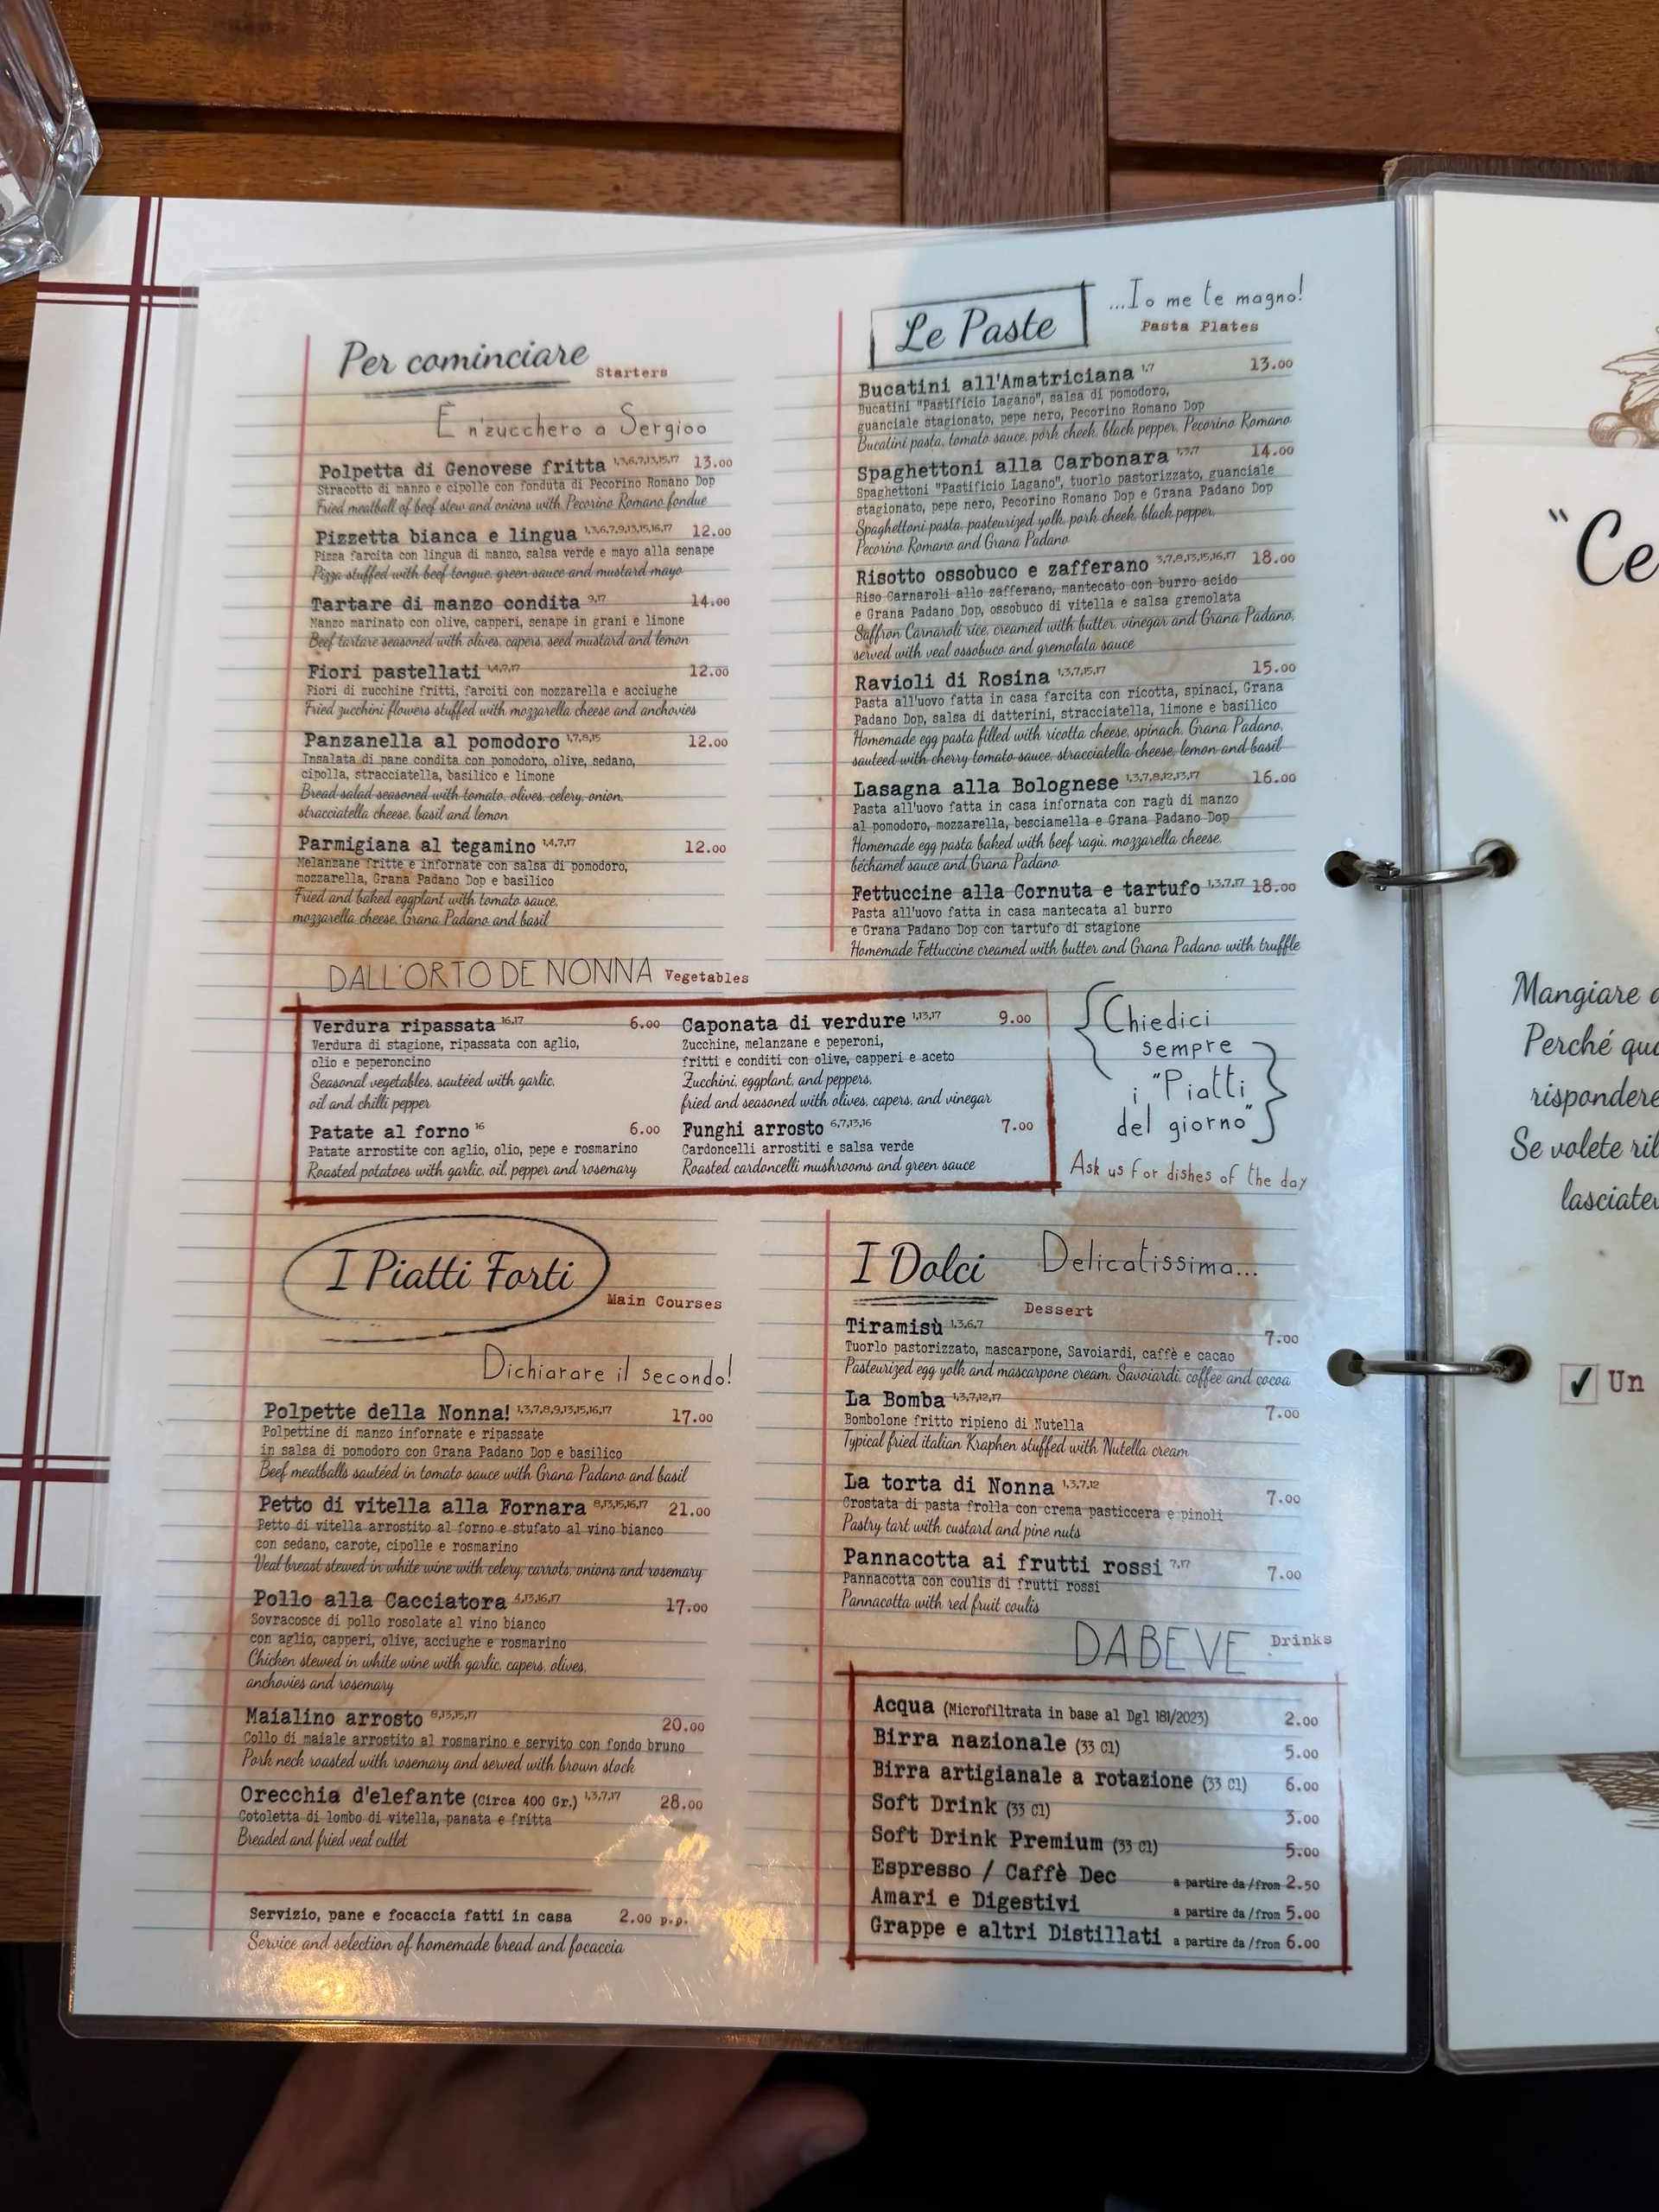 Per cominciare
Starters
È n'zucchero a Sergioo
Polpetta di Genovese fritta 1,3,6,7,13,15,17 13.00
Stracotto di manzo e cipolle con fonduta di Pecorino Romano Dop
Fried meatball of beef stew and onions with Pecorino Romano fondue
Pizzetta bianca e lingua 1,3,6,7,9,13,15,16,17 12.00
Pizza farcita con lingua di manzo, salsa verde e mayo alla senape
Pizza stuffed with beef tongue, green sauce and mustard mayo
Tartare di manzo condita 9,17 14.00
Manzo marinato con olive, capperi, senape in grani e limone
Beef tartare seasoned with olives, capers, seed mustard and lemon
Fiori pastellati 1,4,7,17 12.00
Fiori di zucchine fritti, farciti con mozzarella e acciughe
Fried zucchini flowers stuffed with mozzarella cheese and anchovies
Panzanella al pomodoro 1,7,8,15 12.00
Insalata di pane condita con pomodoro, olive, sedano,
cipolla, stracciatella, basilico e limone
Bread salad seasoned with tomato, olives, celery, onion,
stracciatella cheese, basil and lemon
Parmigiana al tegamino 1,4,7,17 12.00
Melanzane fritte e infornate con salsa di pomodoro,
mozzarella, Grana Padano Dop e basilico
Fried and baked eggplant with tomato sauce,
mozzarella cheese, Grana Padano and basil
Le Paste
...Io me te magno!
Pasta Plates
Bucatini all'Amatriciana 1,7 13.00
Bucatini "Pastificio Lagano", salsa di pomodoro,
guanciale stagionato, pepe nero, Pecorino Romano Dop
Bucatini pasta, tomato sauce, pork cheek, black pepper, Pecorino Romano
Spaghettoni alla Carbonara 1,3,7 14.00
Spaghettoni "Pastificio Lagano", tuorlo pastorizzato, guanciale
stagionato, pepe nero, Pecorino Romano Dop e Grana Padano Dop
Spaghettoni pasta, pasteurized yolk, pork cheek, black pepper,
Pecorino Romano and Grana Padano
Risotto ossobuco e zafferano 3,7,8,13,15,16,17 18.00
Riso Carnaroli allo zafferano, mantecato con burro acido
e Grana Padano Dop, ossobuco di vitella e salsa gremolata
Saffron Carnaroli rice, creamed with butter, vinegar and Grana Padano,
served with veal ossobuco and gremolata sauce
Ravioli di Rosina 1,3,7,15,17 15.00
Pasta all'uovo fatta in casa farcita con ricotta, spinaci, Grana
Padano Dop, salsa di datterini, stracciatella, limone e basilico
Homemade egg pasta filled with ricotta cheese, spinach, Grana Padano,
sauteed with cherry tomato sauce, stracciatella cheese, lemon and basil
Lasagna alla Bolognese 1,3,7,8,12,13,17 16.00
Pasta all'uovo fatta in casa infornata con ragù di manzo
al pomodoro, mozzarella, besciamella e Grana Padano Dop
Homemade egg pasta baked with beef ragù, mozzarella cheese,
béchamel sauce and Grana Padano
Fettuccine alla Cornuta e tartufo 1,3,7,17 18.00
Pasta all'uovo fatta in casa mantecata al burro
e Grana Padano Dop con tartufo di stagione
Homemade Fettuccine creamed with butter and Grana Padano with truffle
DALL'ORTO DE NONNA Vegetables
Verdura ripassata 16,17 6.00
Verdura di stagione, ripassata con aglio,
olio e peperoncino
Seasonal vegetables, sautéed with garlic,
oil and chilli pepper
Patate al forno 16 6.00
Patate arrostite con aglio, olio, pepe e rosmarino
Roasted potatoes with garlic, oil, pepper and rosemary
Caponata di verdure 1,13,17 9.00
Zucchine, melanzane e peperoni,
fritti e conditi con olive, capperi e aceto
Zucchini, eggplant, and peppers,
fried and seasoned with olives, capers, and vinegar
Funghi arrosto 6,7,13,16 7.00
Cardoncelli arrostiti e salsa verde
Roasted cardoncelli mushrooms and green sauce
Chiedici
sempre
i "Piatti
del giorno"
Ask us for dishes of the day
I Piatti Forti
Main Courses
Dichiarare il secondo!
Polpette della Nonna! 1,3,7,8,9,13,15,16,17 17.00
Polpettine di manzo infornate e ripassate
in salsa di pomodoro con Grana Padano Dop e basilico
Beef meatballs sautéed in tomato sauce with Grana Padano and basil
Petto di vitella alla Fornara 8,13,15,16,17 21.00
Petto di vitella arrostito al forno e stufato al vino bianco
con sedano, carote, cipolle e rosmarino
Veal breast stewed in white wine with celery, carrots, onions and rosemary
Pollo alla Cacciatora 4,13,16,17 17.00
Sovracosce di pollo rosolate al vino bianco
con aglio, capperi, olive, acciughe e rosmarino
Chicken stewed in white wine with garlic, capers, olives,
anchovies and rosemary
Maialino arrosto 8,13,15,17 20.00
Collo di maiale arrostito al rosmarino e servito con fondo bruno
Pork neck roasted with rosemary and served with brown stock
Orecchia d'elefante (Circa 400 Gr.) 1,3,7,17 28.00
Cotoletta di lombo di vitella, panata e fritta
Breaded and fried veal cutlet
Servizio, pane e focaccia fatti in casa 2.00 p.p.
Service and selection of homemade bread and focaccia
I Dolci
Delicatissima...
Dessert
Tiramisù 1,3,6,7 7.00
Tuorlo pastorizzato, mascarpone, Savoiardi, caffè e cacao
Pasteurized egg yolk and mascarpone cream, Savoiardi, coffee and cocoa
La Bomba 1,3,7,12,17 7.00
Bombolone fritto ripieno di Nutella
Typical fried italian Kraphen stuffed with Nutella cream
La torta di Nonna 1,3,7,12 7.00
Crostata di pasta frolla con crema pasticcera e pinoli
Pastry tart with custard and pine nuts
Pannacotta ai frutti rossi 7,17 7.00
Pannacotta con coulis di frutti rossi
Pannacotta with red fruit coulis
DA BEVE Drinks
Acqua (Microfiltrata in base al Dgl 181/2023) 2.00
Birra nazionale (33 Cl) 5.00
Birra artigianale a rotazione (33 Cl) 6.00
Soft Drink (33 Cl) 3.00
Soft Drink Premium (33 Cl) 5.00
Espresso / Caffè Dec a partire da /from 2.50
Amari e Digestivi a partire da /from 5.00
Grappe e altri Distillati a partire da /from 6.00
"Ce
Mangiare
Perché
rispondere
Se volete
✓ Un